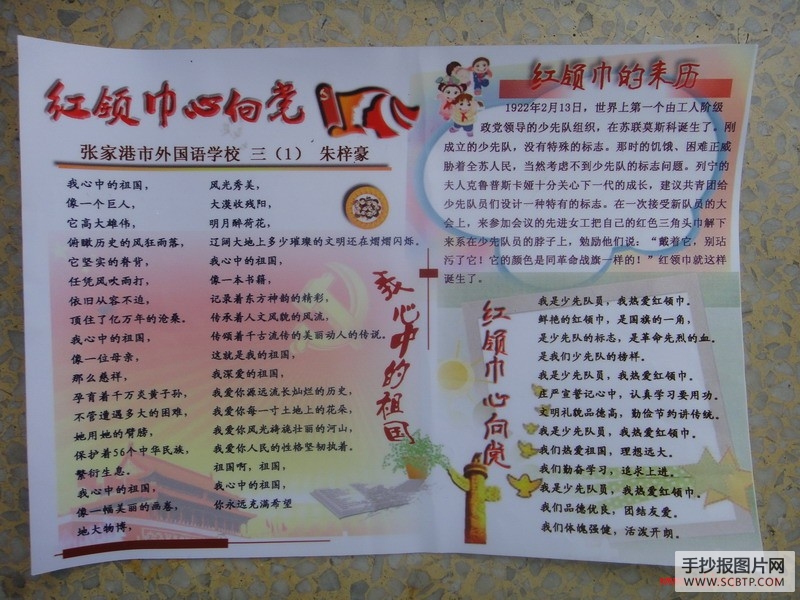 红领巾心向党
张家港市外国语学校 三（1） 朱梓豪
我心中的祖国，
像一个巨人，
它高大雄伟，
俯瞰历史的风狂雨落，
它坚实的脊背，
任凭风吹雨打，
依旧从容不迫，
顶住了亿万年的沧桑。
我心中的祖国，
像一位母亲，
那么慈祥，
孕育着千万炎黄子孙，
不管遭遇多大的困难，
她用她的臂膀，
保护着56个中华民族，
繁衍生息。
我心中的祖国，
像一幅美丽的画卷，
地大物博，
风光秀美，
大漠收残阳，
明月醉荷花，
辽阔大地上多少璀璨的文明还在熠熠闪烁。
我心中的祖国，
像一本书籍，
记录着东方神韵的精彩，
传承着人文风貌的风流，
传颂着千古流传的美丽动人的传说。
这就是我的祖国，
我深爱的祖国，
我爱你源远流长灿烂的历史，
我爱你每一寸土地上的花朵，
我爱你风光旖旎壮丽的河山，
我爱你人民的性格坚韧执着。
祖国啊，祖国，
我心中的祖国，
你永远充满希望
我心中的祖国
红领巾的来历
1922年2月13日，世界上第一个由工人阶级
政党领导的少先队组织，在苏联莫斯科诞生了。刚
成立的少先队，没有特殊的标志。那时的饥饿、困难正威
胁着全苏人民，当然考虑不到少先队的标志问题。列宁的
夫人克鲁普斯卡娅十分关心下一代的成长，建议共青团给
少先队员们设计一种特有的标志。在一次接受新队员的大
会上，来参加会议的先进女工把自己的红色三角头巾解下
来系在少先队员的脖子上，勉励他们说：“戴着它，别玷
污了它！它的颜色是同革命战旗一样的！”红领巾就这样
诞生了。
红领巾心向党
我是少先队员，我热爱红领巾。
鲜艳的红领巾，是国旗的一角，
是少先队的标志，是革命先烈的血。
是我们少先队的榜样。
我是少先队员，我热爱红领巾。
庄严宣誓记心中，认真学习要用功。
文明礼貌品德高，勤俭节约讲传统。
我是少先队员，我热爱红领巾。
我们热爱祖国，理想远大。
我们勤奋学习，追求上进。
我是少先队员，我热爱红领巾。
我们品德优良，团结友爱。
我们体魄强健，活泼开朗。
手抄报图片网
WWW.SCBTP.COM